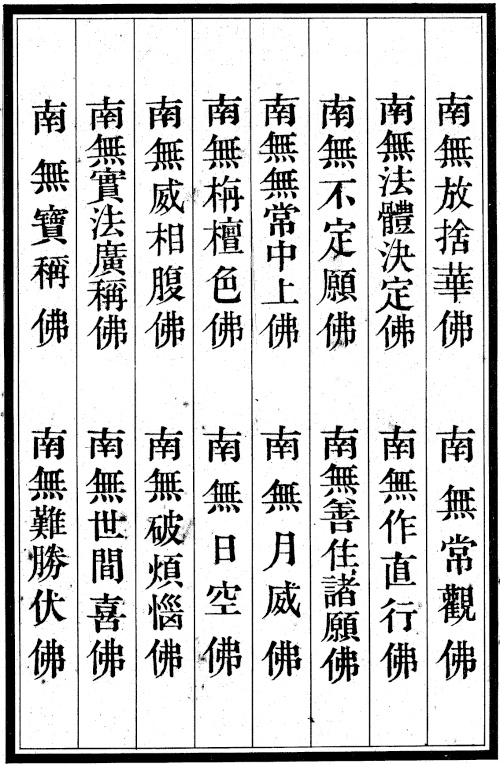 南無放捨華佛　南無常觀佛
南無法體決定佛　南無作直行佛
南無不定願佛　南無善住諸願佛
南無無常中上佛　南無月威佛
南無栴檀色佛　南無日空佛
南無威相腹佛　南無破煩惱佛
南無實法廣稱佛　南無世間喜佛
南無寶稱佛　南無難勝伏佛